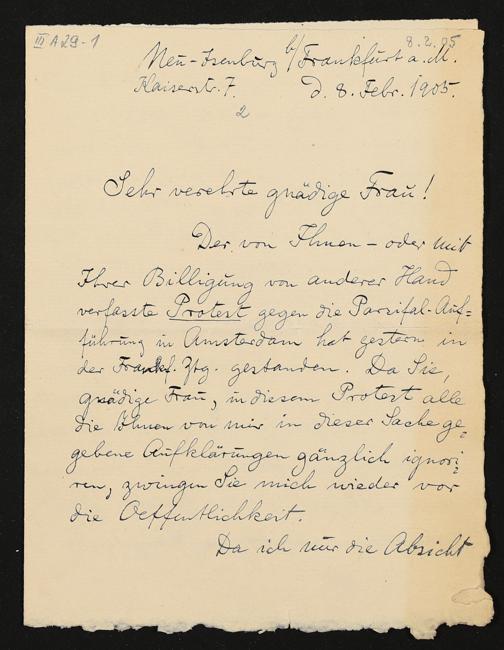 III A 29-1
8.2.05
Neu-Isenburg b/Frankfurt a. M.
Kaiserstr. 7. d. 8. Febr. 1905.
2
Sehr verehrte gnädige Frau!
Der von Ihnen – oder mit
Ihrer Billigung von anderer Hand
verfasste Protest gegen die Parsifal-Auf=
führung in Amsterdam hat gestern in
der Frankf. Ztg. gestanden. Da Sie,
gnädige Frau, in diesem Protest alle
die Ihnen von mir in dieser Sache ge=
gebene Aufklärungen gänzlich ignori=
ren, zwingen Sie mich wieder vor
die Oeffentlichkeit.
Da ich nur die Absicht